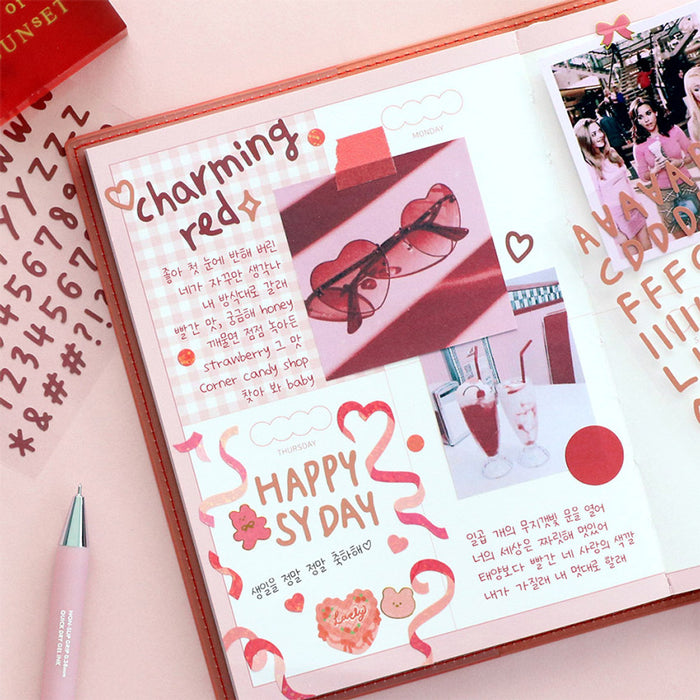 of
SUNSET
MONDAY
charming
red
좋아 첫 눈에 반해 버린
네가 자꾸만 생각나
내 방식대로 갈래
빨간 맛, 궁금해 honey
깨물면 점점 녹아든
strawberry 그 맛
Corner candy shop
찾아 봐 baby
THURSDAY
HAPPY
SY DAY
생일을 정말 정말 축하해♡
Lucky
일곱 개의 무지갯빛 문을 열어
너의 세상은 짜릿해 멋있어
태양보다 빨간 네 사랑의 색깔
내가 가질래 내 멋대로 할래
NON-SLIP GRIP 0.38mm
QUICK DRY GEL INK
ZZZ
*&##?!
FFF